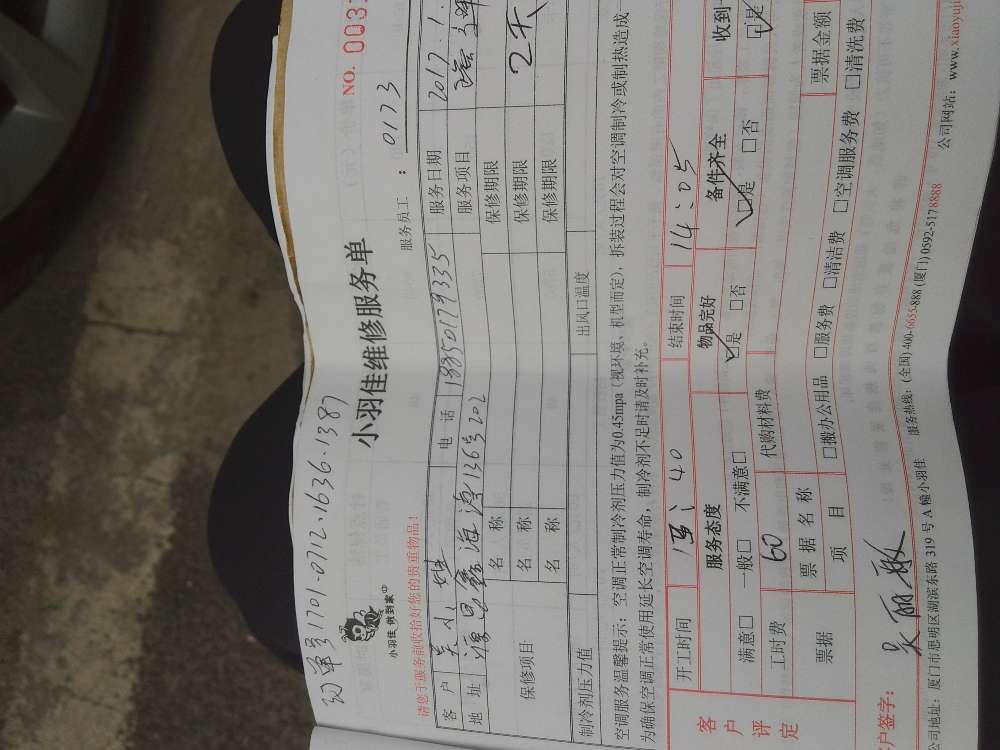 1701-0712-1636-1387
小羽佳 做到家
小羽佳维修服务单
NO. 003
请您于服务前收拾好您的贵重物品!
服务员工： 0173
客 户 吴小姐 电 话 18850179335 服务日期 2017.1.
地 址 136号202 服务项目
保修项目 名 称 保修期限
名 称 保修期限 2天
名 称 保修期限
制冷剂压力值 出风口温度
空调服务温馨提示：空调正常制冷剂压力值为0.45mpa（视环境、机型而定），拆装过程会对空调制冷或制热造成
为确保空调正常使用延长空调寿命，制冷剂不足时请及时补充。
客户评定
开工时间 :40 结束时间 14:05
服务态度 物品完好 备件齐全 收到
满意□ 一般□ 不满意□ □是 □否 □是 □否 □是
工时费 60 代购材料费
票据 票 据 名 称 票据金额
项 目 □搬办公用品 □服务费 □清洁费 □空调服务费 □清洗费
户签字： 吴丽敏
公司地址：厦门市思明区湖滨东路 319 号 A 幢小羽佳 服务热线：(全国) 400-6655-888 (厦门) 0592-5178888 公司网站：www.xiaoyuji